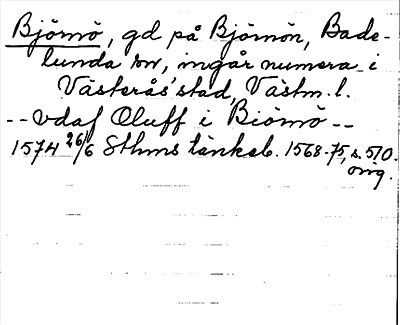 Björnö, gd på Björnön, Bade-
lunda sn, ingår numera i
Västerås' stad, Västm. l.
-- vdaf Oluff i Biörnö --
1574 26/6 Sthms tänkeb. 1568-75, s. 510.
orig.